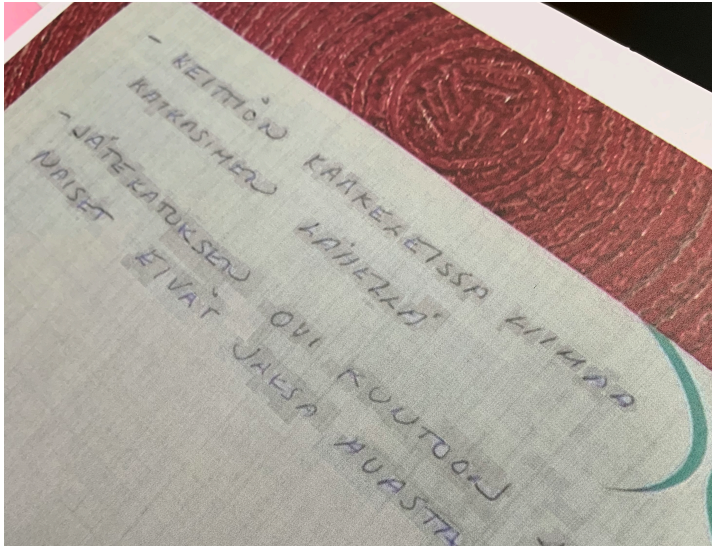 - KEITTIÖN KAAKELEISSA LIIMAA
KATKASIMEN LÄHELLÄ
- JÄTEKATUKSEN OVI KUNTOON
NAISET EIVÄT JAKSA AVASTA